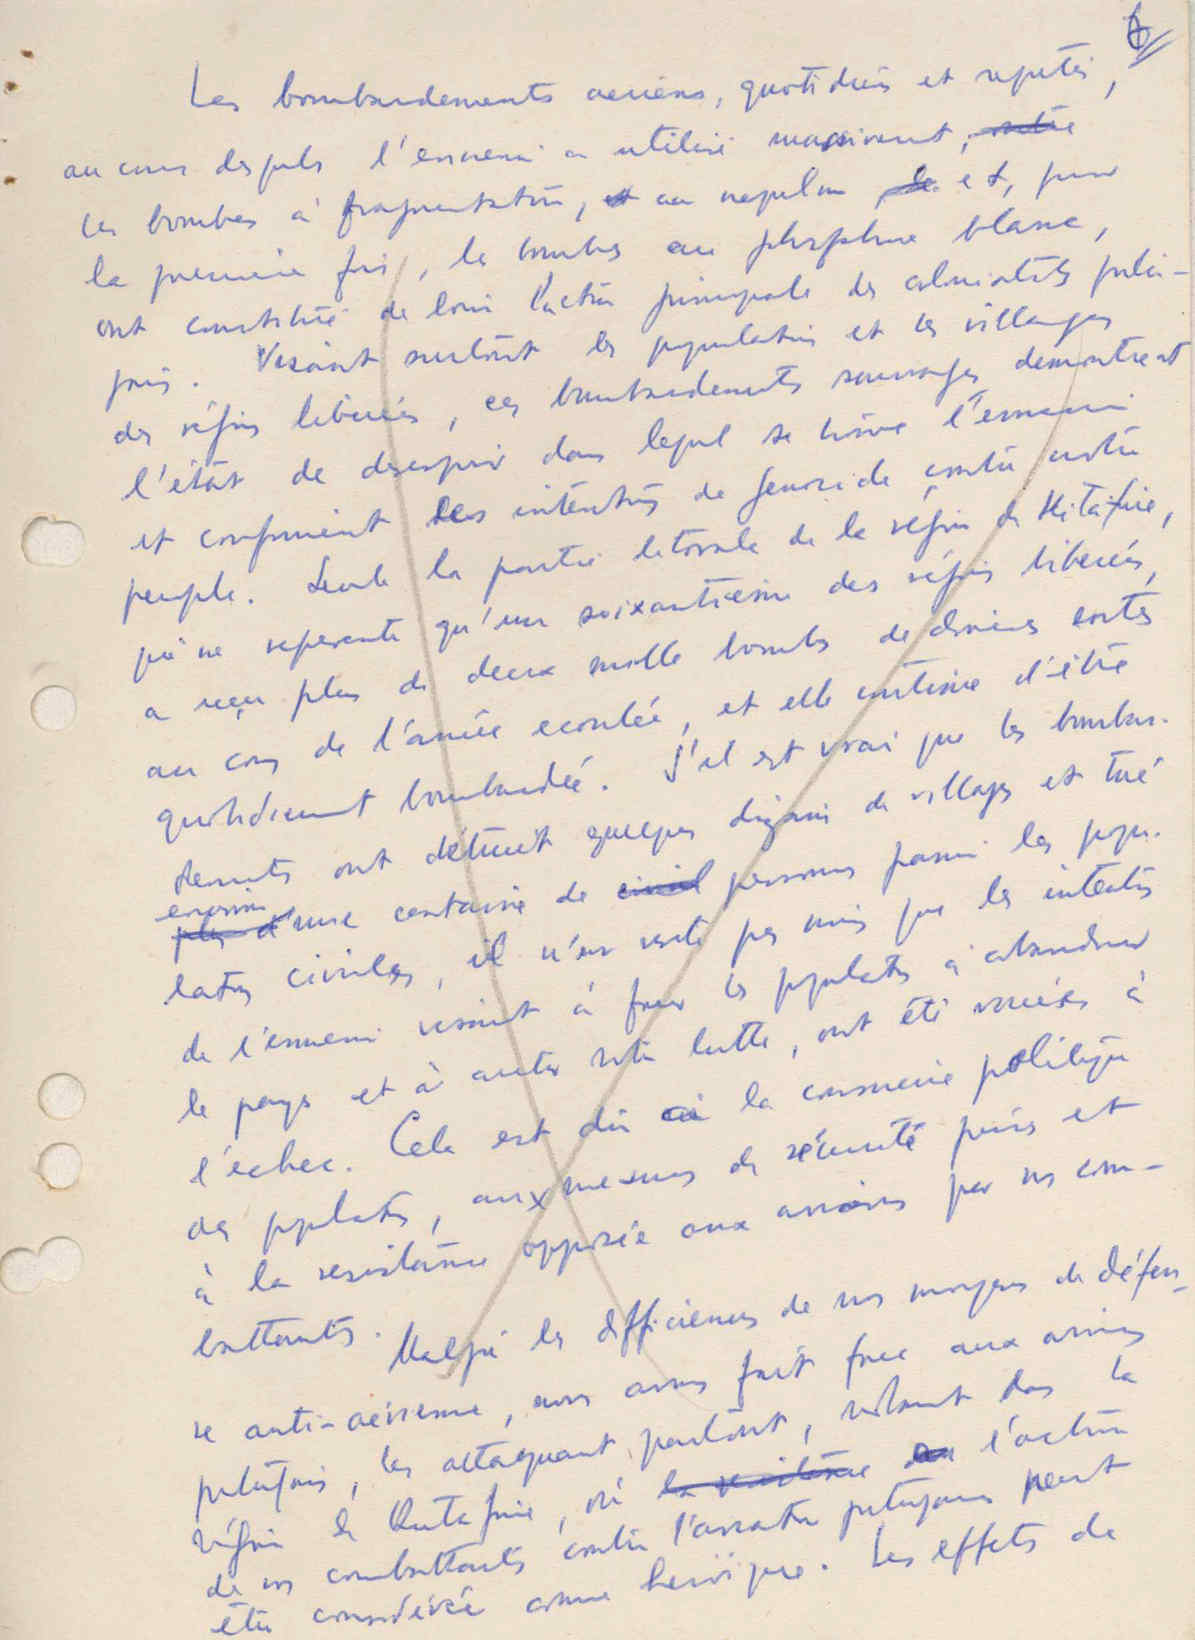 6
Les bombardements aeriens, quotidiens et repetés,
au cours desquels l'ennemi a utilisé massivement,
les bombes à fragmentation, au napalm et, pour
la première fois, les bombes au phosphore blanc,
ont constitué de loin l'action principale des colonialistes portu-
gais. Visant surtout les populations et les villages
des régions liberées, ces bombardements sauvages demontrent
l'état de desespoir dans lequel se trouve l'ennemi
et confirment ses intentions de genocide contre notre
peuple. Seule la partie litorale de la région de Kitafine,
qui ne represente qu'un soixantième des régions liberées,
a reçu plus de deux mille bombes de diverses sortes
au cours de l'année ecoulée, et elle continue d'être
quotidiennement bombardée. S'il est vrai que les bombar-
dements ont détruit quelques dizaines de villages et tué
environ une centaine de personnes parmi les popu-
lations civiles, il n'en reste pas moins que les intentions
de l'ennemi visant à forcer les populations à abandonner
le pays et à arrêter notre lutte, ont été vouées à
l'échec. Cela est dû à la conscience politique
des populations, aux mesures de sécurité prises et
à la resistance opposée aux avions par nos com-
battants. Malgré les difficiences de nos moyens de défen-
se anti-aérienne, nous avons fait face aux avions
portugais, les attaquant partout, notamment dans la
région de Kitafine, où l'action
de nos combattants contre l'aviation portugaise peut
être considérée comme heroïque. Les effets de